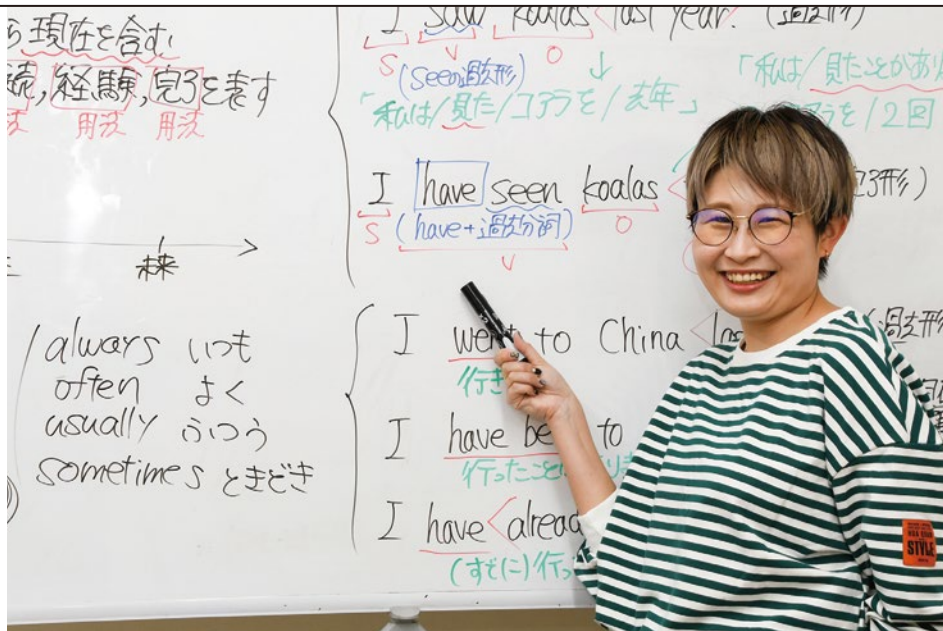 現在を含む
経験,完了を表す
用法 用法
未来
always いつも
often よく
usually ふつう
sometimes ときどき
I saw koalas < last year. (過去形)
S V O
(seeの過去形)
「私は/見た/コアラを/去年」
「私は/見たことがあり
を/2回
I have seen koalas <
S (have+過去分詞) O
V
I went to China <
(過去形
行き
I have be to
行ったこと
I have < alread
(すでに)行っ
STYLE